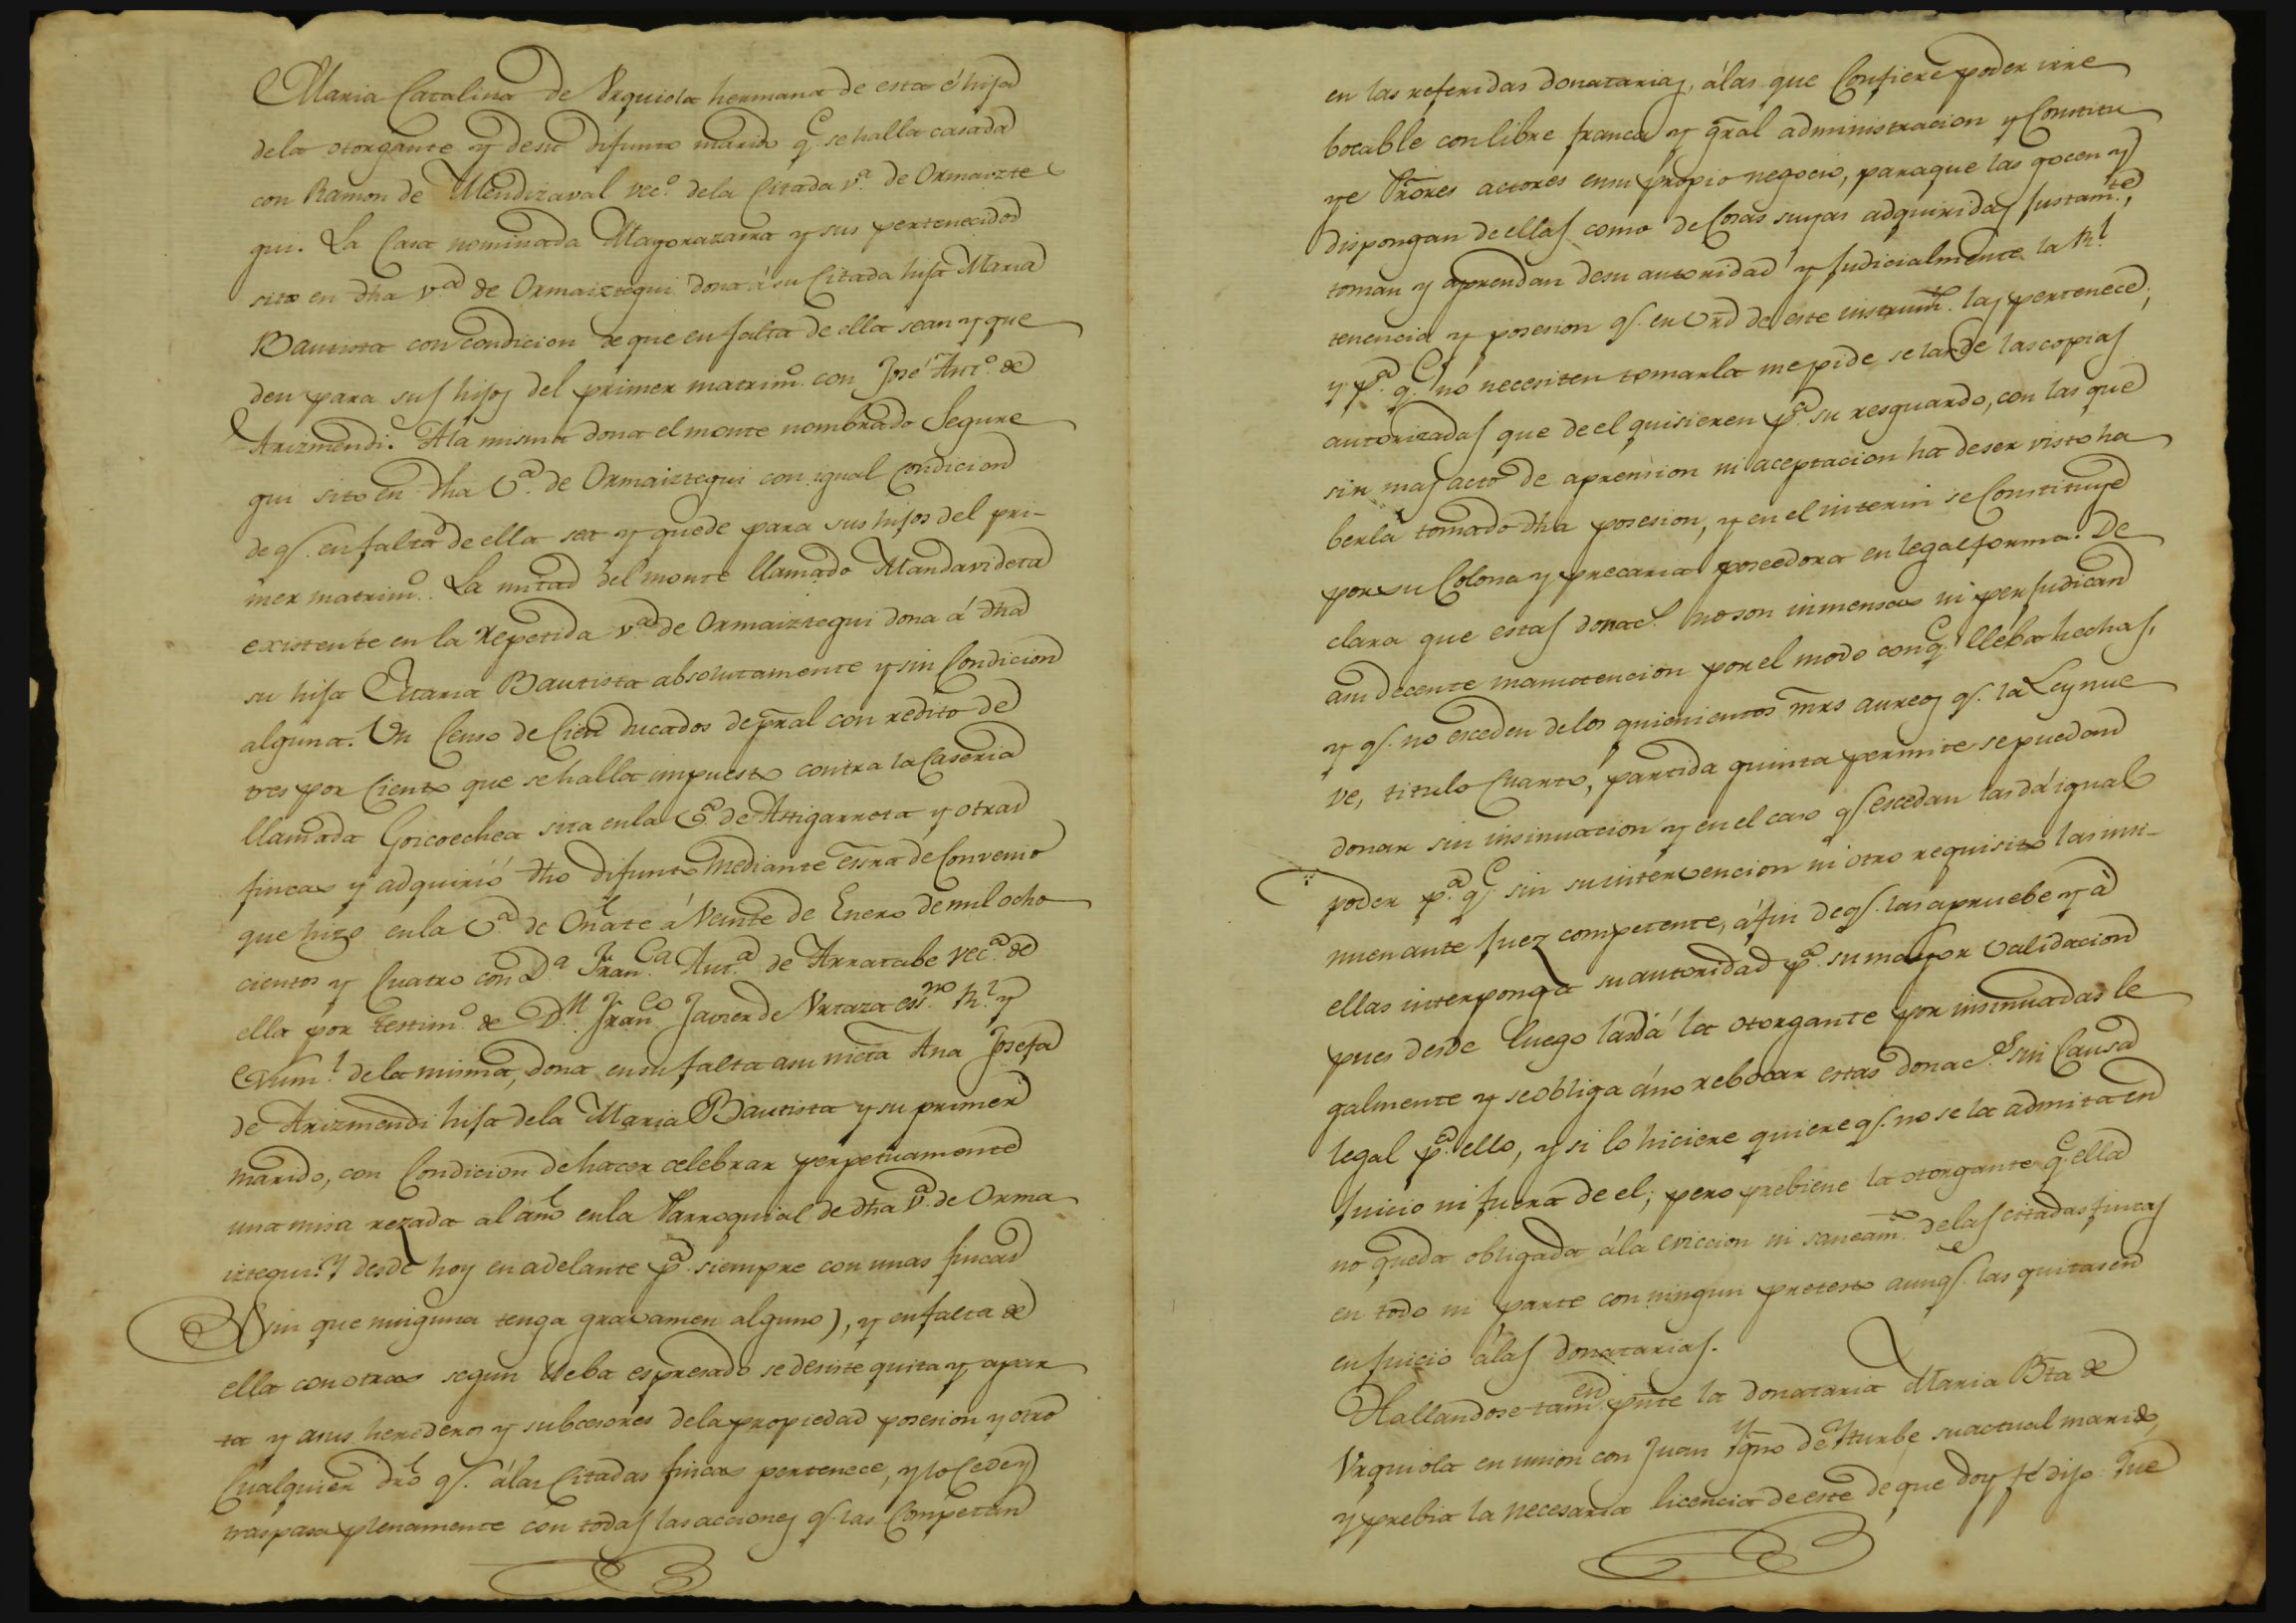 Maria Catalina de Urquiola hermana de esta é hija
dela otorgante y desu difunto marido q.e se halla casada
con Ramon de Mendizaval vec.o dela Citada v.a de Ormaizte
gui. La Casa nominada Mayorazarra y sus pertenecidos
sito en dha v.a de Ormaiztegui dona á su Citada hija Maria
Bautista con condicion de que en falta de ella sean y que
den para sus hijos del primer matrim.o con José Ant.o de
Arizmendi. A la misma dona el monte nombrado Segure
gui sito en dha V.a de Ormaiztegui con igual Condicion
de q.e en falta de ella sea y quede para sus hijos del pri-
mer matrim.o. La mitad del monte llamado Mandavideta
existente en la Repetida v.a de Ormaiztegui dona á dha
su hija Maria Bautista absolutamente y sin Condicion
alguna. Un Censo de Cien ducados de pral con redito de
tres por Ciento que se halla impuesto contra la Caseria
llamada Goicoechea sita en la V.a de Astigarreta y otras
fincas y adquirió dho difunto Mediante essra de Convenio
que hizo en la V.a de Oñate á Veinte de Enero de mil ocho
cientos y Cuatro con D.a Fran.ca Ant.a de Arratabe vec.a de
ella por Testim.o de D.n Fran.co Javier de Urtaza ess.no R.l y
Num.l de la misma, dona en su falta asu nieta Ana Josefa
de Arizmendi hija dela Maria Bautista y su primer
marido, con Condicion de hacer celebrar perpetuamente
una misa rezada al año en la Parroquial de dha V.a de Orma
iztegui. Y desde hoy en adelante p.a siempre con unas fincas
(sin que ninguna tenga gravamen alguno), y en falta de
ella con otras segun lleba espresado se desiste quita y apar
ta y asus herederos y subcesores dela propiedad posesion y otro
Cualquier dro q.e álas Citadas fincas pertenece, y lo Cede y
traspasa plenamente con todas las acciones q.e las Competan
en las referidas donatarias, álas que Confiere poder irre
bocable con libre franca y gral administracion y Constitu
ye Prores actores en su propio negocio, para que las gocen y
dispongan de ellas como de Cosas suyas adquiridas justam.te,
toman y aprendan desu autoridad y judicialmente la R.l
tenencia y posesion q.e en Vrd de este instrum.to las pertenece;
y p.a q.e no necesiten tomarla me pide se las de las copias
autorizadas que de el quisieren p.a su resguardo, con las que
sin mas acto de aprension ni aceptacion ha de ser visto ha
berla tomado dha posesion, y en el interin se Constituye
por su Colona y precaria poseedora en legal forma. De
clara que estas donac.s no son inmensas ni perjudican
asu decente manutencion por el modo con q.e lleba hechas,
y q.e no esceden delos quinientos mrs aureos q.e la Ley nue
ve, titulo Cuarto, partida quinta permite se puedan
donar sin insinuacion y en el caso q.e escedan las dá igual
poder p.a q.e sin su intervencion ni otro requisito las insi-
nuen ante Juez competente, á fin de q.e las apruebe y á
ellas interponga su autoridad p.a su mayor validacion
pues desde luego las dá la otorgante por insinuadas le
galmente y se obliga áno rebocar estas donac.s sin Causa
legal p.a ello, y si lo hiciere quiere q.e no se la admita en
Juicio ni fuera de el; pero prebiene la otorgante q.e ella
no queda obligada ála eviccion ni saneam.to delas citadas fincas
en todo ni parte con ningun pretesto aunq.e las quitasen
en Juicio álas donatarias.
Hallandose tam.en pnte la donataria Maria Bta de
Urquiola en union con Juan Ygno de Yturbe su actual marido,
y prebia la necesaria licencia de este de que doy fé dijo: Que